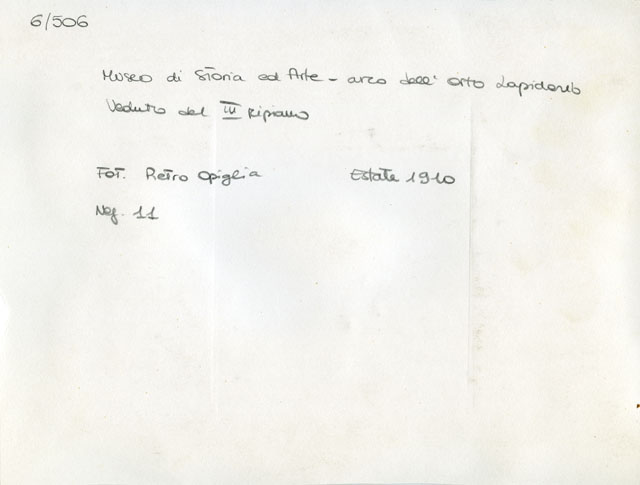 6/506
Museo di Storia ed Arte - arco dell' orto Lapidario
Veduto dal III Ripiano
Fot. Pietro Opiglia Estate 1910
Neg. 11